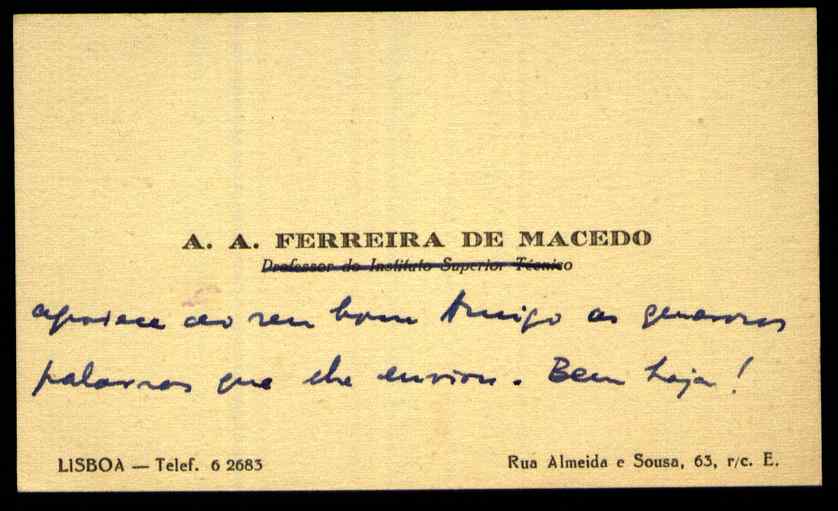 A. A. FERREIRA DE MACEDO
Professor do Instituto Superior Técnico
agradece ao seu bom Amigo as generosas
palavras que lhe enviou. Bem haja!
LISBOA — Telef. 6 2683
Rua Almeida e Sousa, 63, r/c. E.